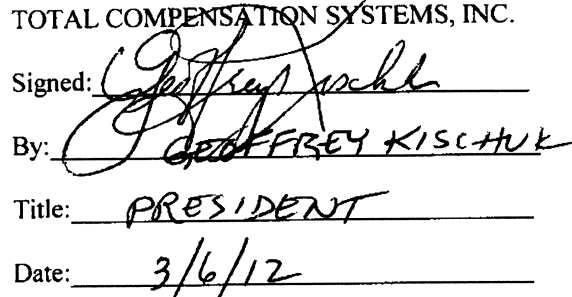 TOTAL COMPENSATION SYSTEMS, INC.
Signed: Geoffrey Kischuk
By: GEOFFREY KISCHUK
Title: PRESIDENT
Date: 3/6/12